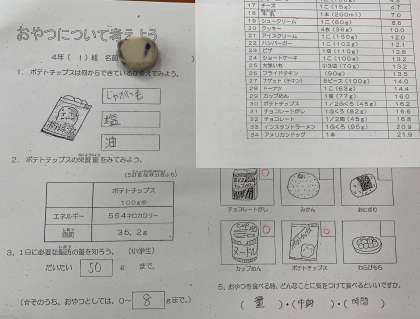 おやつについて考えよう
4年（1）組 名前
1．ポテトチップスは何からできているか考えてみよう。
じゃがいも
塩
油
2．ポテトチップスの栄養量をみてみよう。
ポテトチップス
100g中
エネルギー 554キロカロリー
脂質 35.2g
3．1日に必要な脂質の量を知ろう。（小学生）
だいたい 50 gまで。
（☆そのうち、おやつとしては、0～ 8 gまで。）
17 チーズ 6.7
18 牛乳 1本（200ml） 7.0
19 シュークリーム 1こ（60g） 8.6
20 クッキー 10.0
21 アイスクリーム 12.0
22 ハンバーガー 1こ（102g） 12.1
23 ピザ 12.8
24 ショートケーキ 1こ（100g） 13.2
25 大学いも 13.2
26 フライドチキン （90g） 13.5
27 ナゲット（チキン） 5ピース（100g） 14.0
28 ドーナツ 1こ（63g） 14.4
29 カップめん 1個（77g） 16.0
30 ポテトチップス 1/2ふくろ（45g） 16.2
31 チョコレートがし 1ふくろ（82g） 16.6
32 チョコレート 1/2箱（45g） 16.8
33 インスタントラーメン 1ふくろ（95g） 20.9
34 アメリカンドッグ 1本 21.9
チョコレートがし みかん おにぎり
ヌードル
カップめん ポテトチップス わらびもち
5．おやつを食べる時、どんなことに気をつけて食べるといいですか。
（量）・（牛乳）・（時間）